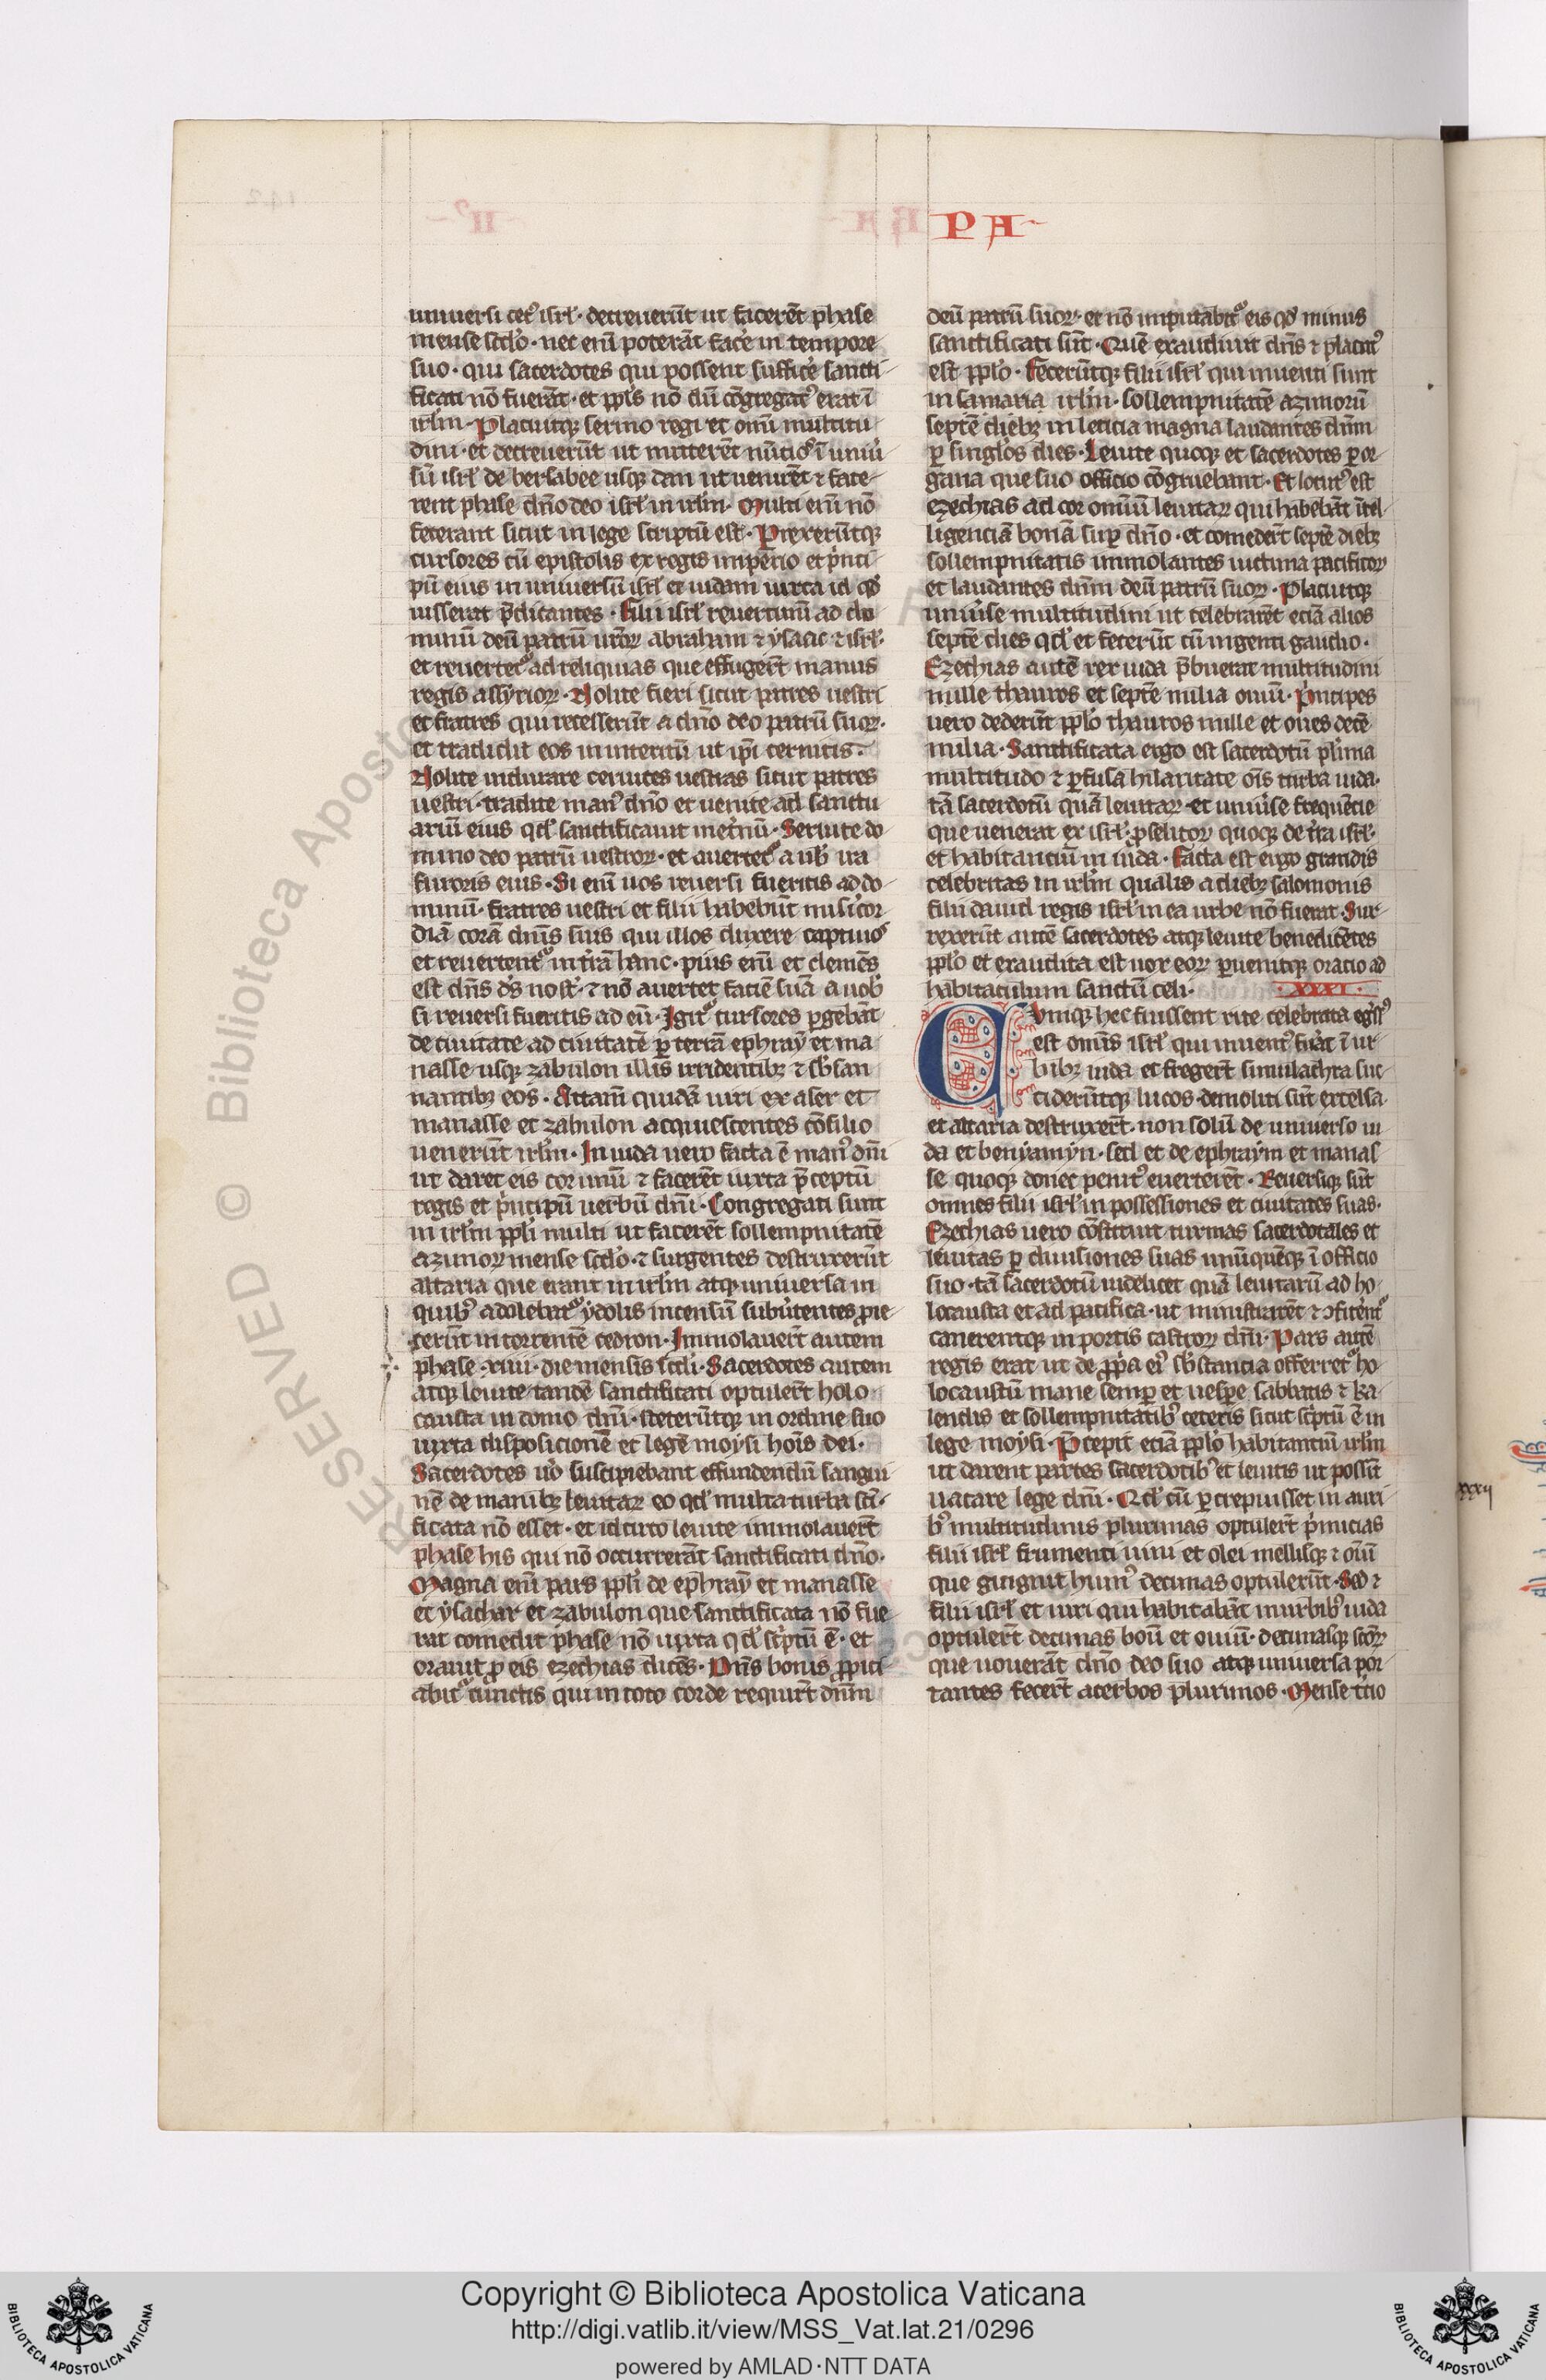 PA
uniuersi cet᷒ isrl̕· decreuerūt ut facerēt phase
mense scd̕o· nec enī poterāt fac̕e in tempore
suo· qui sacerdotes qui possent suffic̕e sancti
ficati nō fuerāt· et ppl̕s nō dū cōgregat᷒ erat ī
irl̕m· Placuitqꝫ sermo regi et omī multitu
dini· et decreuerūt ut mitterēt nūtios ī uniu̕
sū isrl̕ de bersabee usqꝫ dan ut uenirēt ⁊ face
rent phase dn̄o deo isrl̕ in irl̕m· Multi enī nō
fecerant sicut in lege scriptū est· Prexerūtqꝫ
cursores cū epistolis ex regis imperio et p̕nci
pū eius in uniuersū isrl̕ et iudam iuxta id qd̕
iusserat p̄dicantes· Filii isrl̕ reuertimī ad do
minū deū patrū ur̄oꝝ abraham ⁊ ysaac ⁊ isrl̕·
et reuertet᷑ ad reliquias que effugert̄ manus
regis assyrioꝝ· Nolite fieri sicut patres uestri
et fratres qui recesserūt a dn̄o deo patrū suoꝝ·
et tradidit eos in interitū ut ip̄i cernitis·
Nolite indurare ceruices uestras sicut patres
uestri· tradite man᷒ dn̄o et uenite ad sanctu
ariū eius qd̕ sanctificauit inet̕nū· Seruite do
mino deo patrū uestroꝝ· et auertet᷑ a uob̕ ira
furoris eius· Si enī uos reuersi fueritis ad do
minū· fratres uestri et filii habebūt mis̕icor
diā corā dn̄is suis qui illos duxere captiuos
et reuertent᷑ in tr̄ā hanc· pius enī et clemēs
est dn̄s ds̄ nost̕· ⁊ nō auertet faciē suā a uob̕
si reuersi fueritis ad eū· Igit᷑ cursores ꝑgebāt
de ciuitate ad ciuitatē ꝑ terrā ephraȳ et ma
nasse usqꝫ zabulon illis irridentibꝫ ⁊ sb̕san
nantibꝫ eos· Attam̄ quidā uiri ex aser et
manasse et zabulon acquiescentes cōsilio
uenerūt irl̕m· In iuda uero facta ē man᷒ dn̄i
ut daret eis cor unū ⁊ facerēt iuxta p̄ceptū
regis et p̕ncipū uerbū dn̄i· Congregati sunt
in irl̕m ppl̕i multi ut facerēt sollempnitatē
azimoꝝ mense scd̕o· ⁊ surgentes destruxerūt
altaria que erant in irl̕m atqꝫ uniuersa in
quib᷒ adolebat᷑ ydolis incensū subu̕tentes ꝓie
cerūt in torrentē cedron· Immolauert̄ autem
phase xiiii· die mensis scd̕i· Sacerdotes autem
atqꝫ leuite tandē sanctificati optulert̄ holo
causta in domo dn̄i· steterūtqꝫ in ordine suo
iuxta disposicionē et legē moysi hoīs dei·
Sacerdotes u̕o suscipiebant effundendū sangui
nē de manibꝫ leuitaꝝ eo qd̕ multa turba sct̄i
ficata nō esset· et idcirco leuite immolauert̄
phase his qui nō occurrerāt sanctificati dn̄o·
Magna enī pars ppl̕i de ephraȳ et manasse
et ysachar et zabulon que sanctificata nō fue
rat comedit phase nō iuxta qd̕ sc̕ptū ē· et
orauit ꝓ eis ezechias dicēs· Dn̄s bonus ꝓpici
abit᷑ cunctis qui in toto corde requirt̄ dn̄m
deū patrū suoꝝ· et nō imputabit᷑ eis qd̕ minus
sanctificati sūt· Quē exaudiuit dn̄s ⁊ placat᷒
est ppl̕o· Fecerūtqꝫ filii isrl̕ qui inuenti sunt
in samaria irl̕m· sollempnitatē azimorū
septē diebꝫ in leticia magna laudantes dn̄m
ꝑ singl̕os dies· Leuite quoqꝫ et sacerdotes ꝑ or
gana que suo officio cōgruebant· Et locut᷒ est
ezechias ad cor omīū leuitaꝝ qui habebāt ītel
ligenciā bonā suꝑ dn̄o· et comedert̄ septē diebꝫ
sollempnitatis immolantes uictima pacificoꝝ
et laudantes dn̄m deū patrū suoꝝ· Placuitqꝫ
uniu̕se multitudini ut celebrarēt eciā alios
septē dies qd̕ et fecerūt cū ingenti gaudio·
Ezechias autē rex iuda p̄buerat multitudini
mille thauros et septē milia ouiū· p̕ncipes
uero dederūt ppl̕o thauros mille et oues decē
milia· Sanctificata ergo est sacerdotū pl̕ima
multitudo ⁊ ꝑfusa hilaritate oīs turba iuda·
tā sacerdotū quā leuitaꝝ· et uniu̕se frequēcie
que uenerat ex isrl̕· ꝓselitoꝝ quoqꝫ de tr̄a isrl̕·
et habitanciū in iuda· Facta est ergo grandis
celebritas in irl̕m qualis a diebꝫ salomonis
filii dauid regis isrl̕ in ea urbe nō fuerat· Sur
rexerūt autē sacerdotes atqꝫ leuite benedicētes
ppl̕o et exaudita est uox eoꝝ ꝑuenitqꝫ oracio ad
habitaculum sanctū celi· XXXI·
Cumqꝫ hec fuissent rite celebrata egr̕ss᷒
est omīs isrl̕ qui inuent᷒ fu̕at ī ur
bibꝫ iuda et fregert̄ simulachra suc
ciderūtqꝫ lucos demoliti sūt excelsa·
et altaria destruxert̄· non solū de uniuerso iu
da et benyamyn· sed et de ephraym et manas
se quoqꝫ donec penit᷒ euerterēt· Reuersiqꝫ sūt
omnes filii isrl̕ in possessiones et ciuitates suas·
Ezechias uero cōstituit turmas sacerdotales et
leuitas ꝑ diuisiones suas unūquēqꝫ ī officio
suo· tā sacerdotū uidelicet quā leuitarū ad ho
locausta et ad pacifica· ut ministrarēt ⁊ ꝯfitēnt᷑
canerentqꝫ in portis castroꝝ dn̄i· Pars autē
regis erat ut de ꝓp̕a ei᷒ sb̕stancia offerret᷑ ho
locaustū mane semꝑ et uesꝑe sabbatis ⁊ ka
lendis et sollempnitatib᷒ ceteris sicut sc̕ptū ē in
lege moysi· P̄cepit eciā ppl̕o habitantiū irl̕m
ut darent partes sacerdotib᷒ et leuitis ut possīt
uacare lege dn̄i· Qd̕ cū ꝑcrepuisset in auri
b᷒ multitudinis plurimas optulert̄ p̕micias
filii isrl̕ frumenti uini et olei mellisqꝫ ⁊ oīū
que gignit hum᷒ decimas optulerūt· Sed ⁊
filii isrl̕ et uiri qui habitabāt in urbib᷒ iuda
optulert̄ decimas boū et ouiū· decimasqꝫ sc̄oꝝ
que uouerāt dn̄o deo suo atqꝫ uniuersa por
tantes fecert̄ aceruos plurimos· Mense tcio
xxxij
Copyright © Biblioteca Apostolica Vaticana
http://digi.vatlib.it/view/MSS_Vat.lat.21/0296
powered by AMLAD·NTT DATA
BIBLIOTECA APOSTOLICA VATICANA
BIBLIOTECA APOSTOLICA VATICANA
RESERVED © Biblioteca Aposto